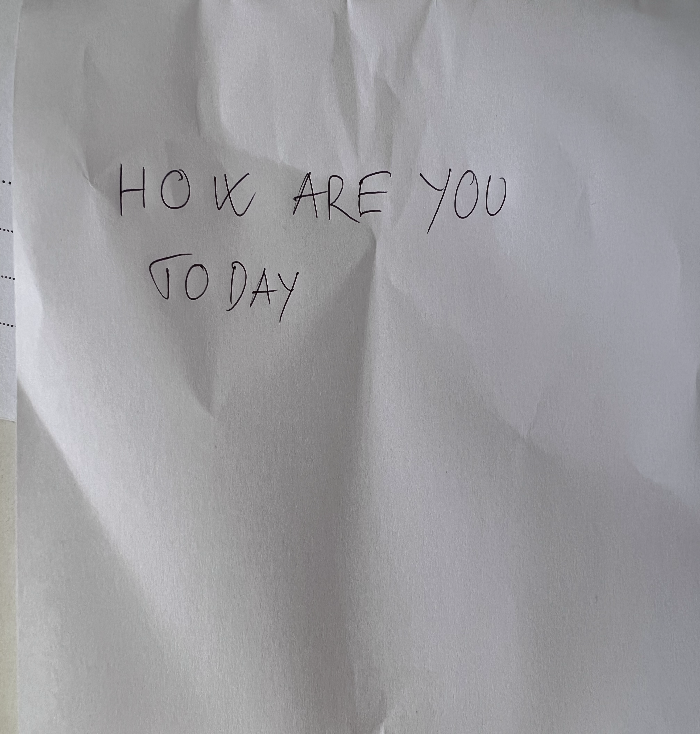 HOW ARE YOU
TODAY